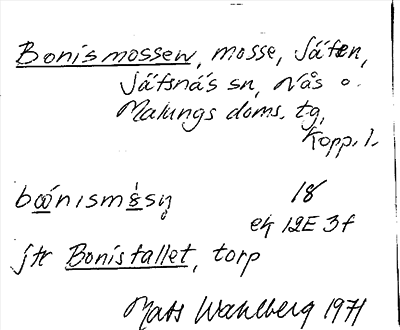 Bonismossen, mosse, Jäfsen,
Jäfsnäs sn, Nås o.
Malungs doms. tg,
Kopp. l.
18
ek 12E 3f
jfr Bonistallet, torp
Mats Wahlberg 1971